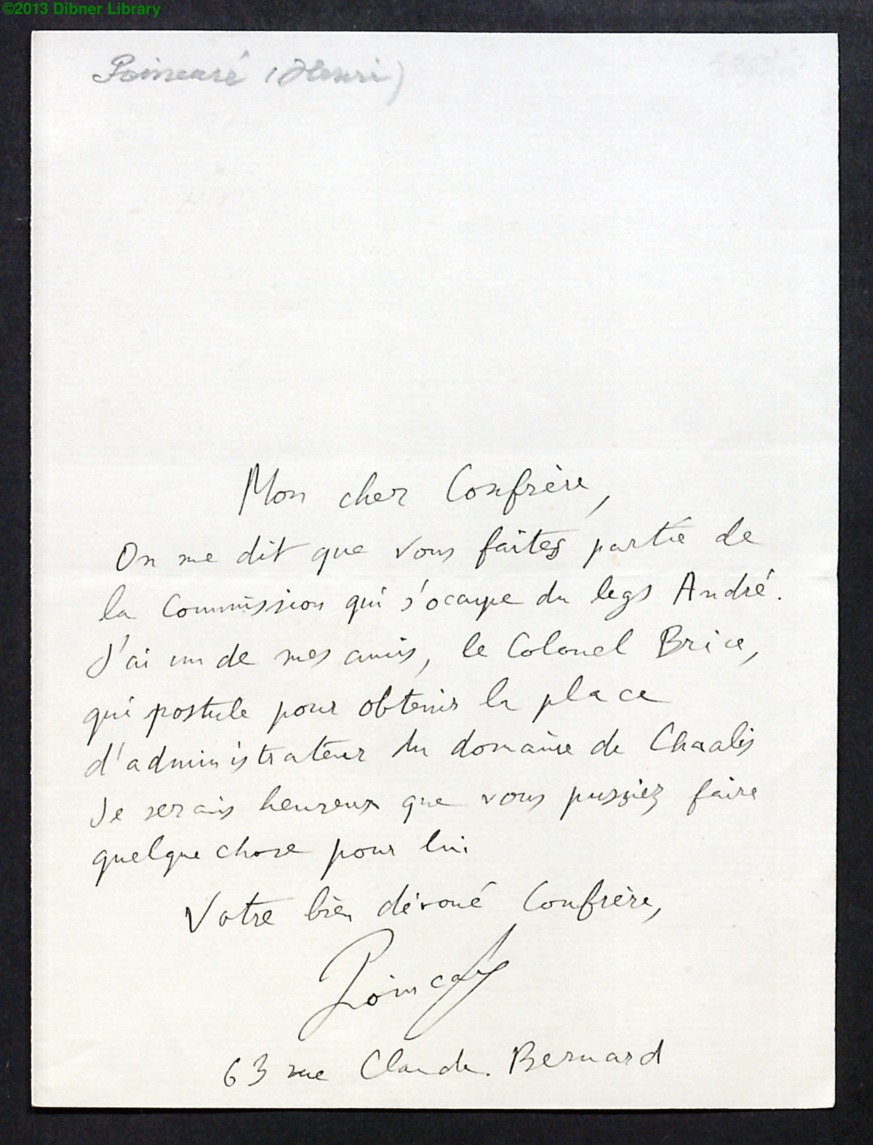 ©2013 Dibner Library
Poincaré (Henri)
Mon cher Confrère,
On me dit que vous faites partie de
la Commission qui s'occupe du legs André.
J'ai un de mes amis, le Colonel Brice,
qui postule pour obtenir la place
d'administrateur du domaine de Chaalis
Je serais heureux que vous pussiez faire
quelque chose pour lui
Votre bien dévoué Confrère,
Poincaré
63 rue Claude Bernard